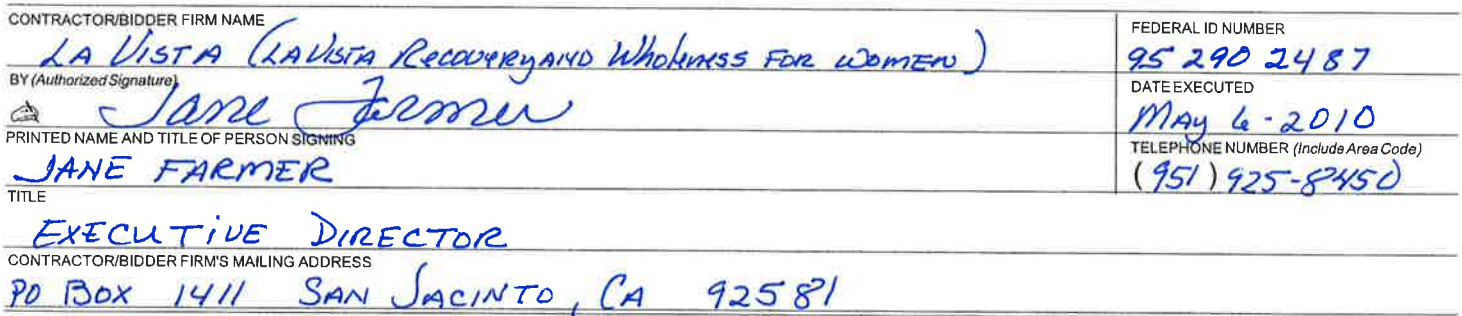 CONTRACTOR/BIDDER FIRM NAME
LA VISTA (LA VISTA RECOVERY AND WHOLENESS FOR WOMEN)
FEDERAL ID NUMBER
95 290 2487
BY (Authorized Signature)
Jane Farmer
DATE EXECUTED
MAY 6 - 2010
PRINTED NAME AND TITLE OF PERSON SIGNING
JANE FARMER
TELEPHONE NUMBER (Include Area Code)
(951) 925-8450
TITLE
EXECUTIVE DIRECTOR
CONTRACTOR/BIDDER FIRM'S MAILING ADDRESS
PO BOX 1411 SAN JACINTO, CA 92581